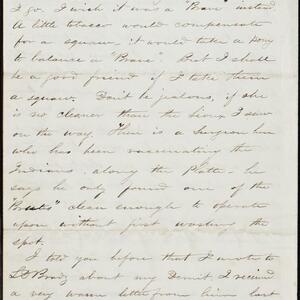 I go, I wish it was a "Brave" instead
A little tobacco would compensate
for a squaw - it would take a pony
to balance a "Brave". But I shall
be a good friend if I take them
a squaw. Don't be jealous, if she
is no cleaner than the Sioux I saw
on the way. There is a Surgeon here
who has been vaccinating the
Indians, along the Platte - he
says he only found one of the
"Brutes" clean enough to operate
upon without first washing the
spot.
I told you before that I wrote to
about my Demit I received
a very warm letter from him last